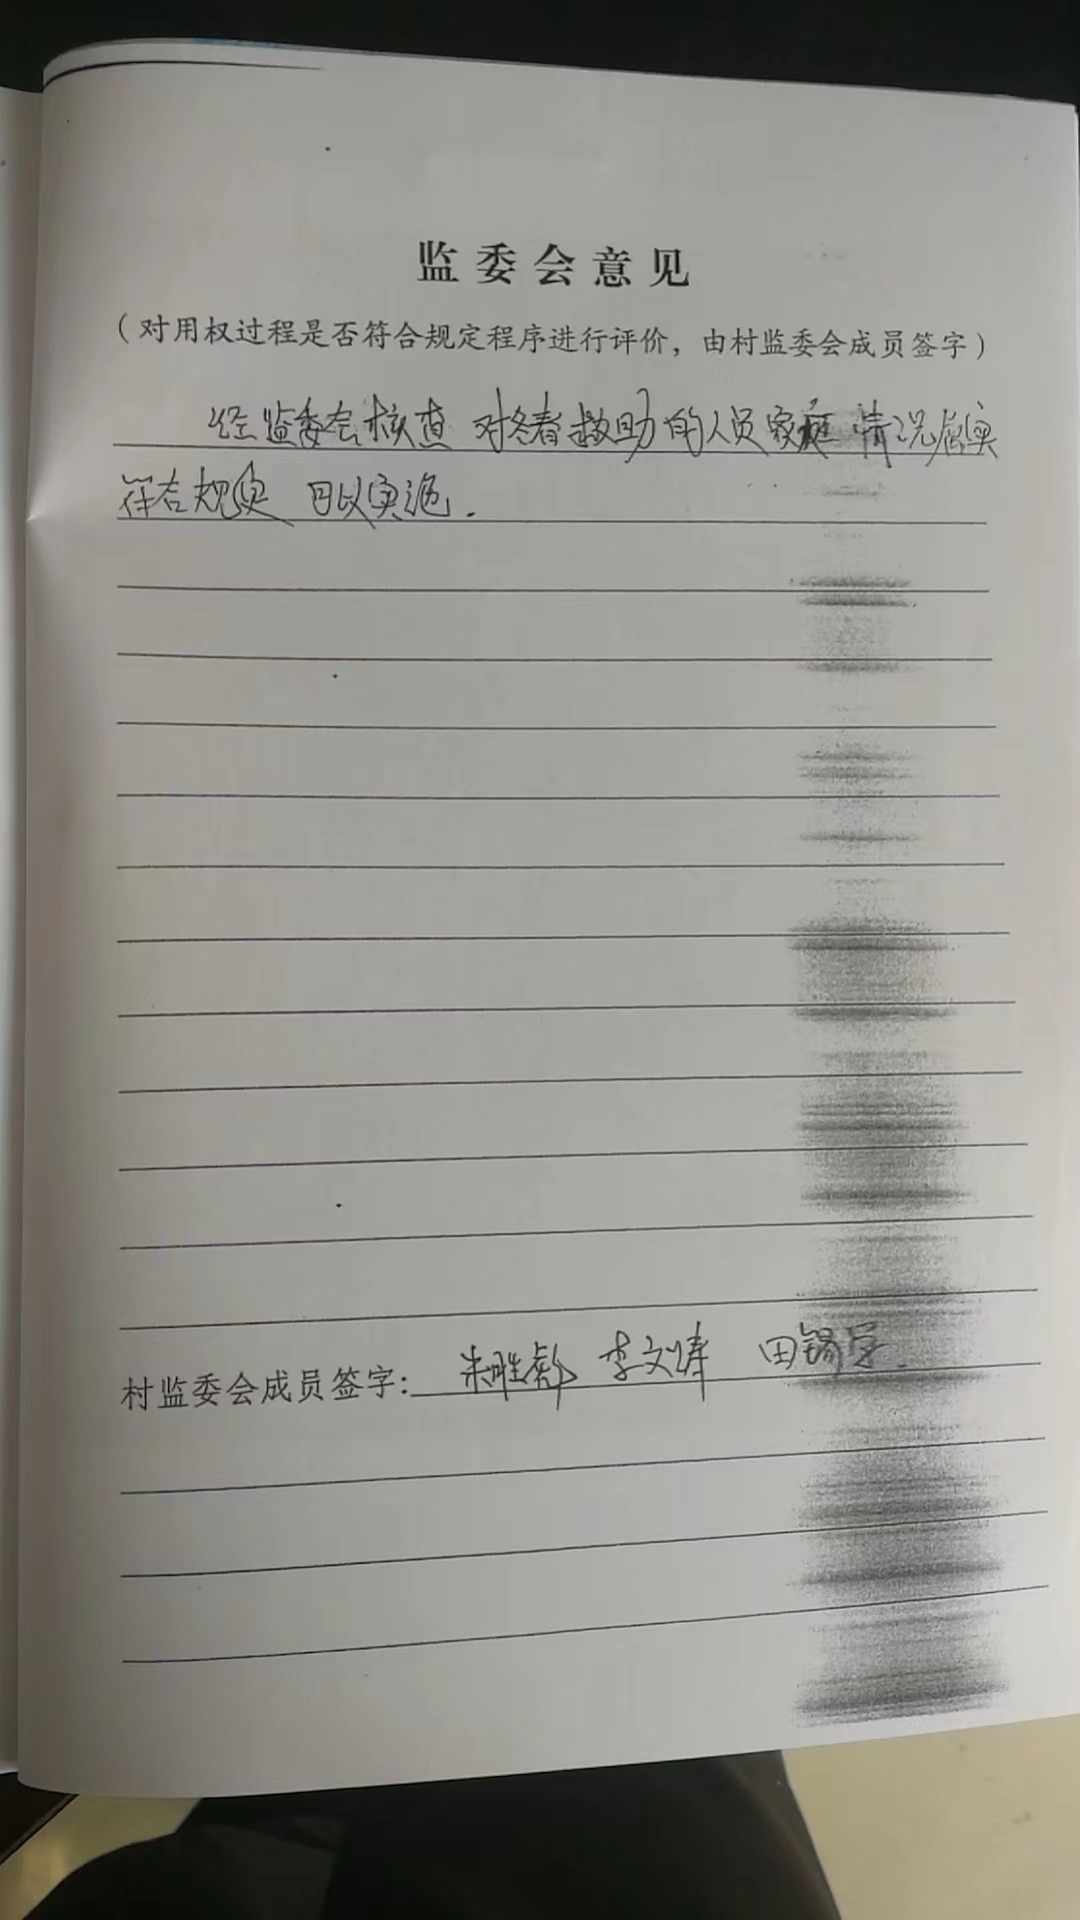 监委会意见
（对用权过程是否符合规定程序进行评价，由村监委会成员签字）
经监委会核查 对冬春救助的人员家庭情况属实
符合规定 可以实施.
村监委会成员签字: 朱胜彪 李文烽 田锡